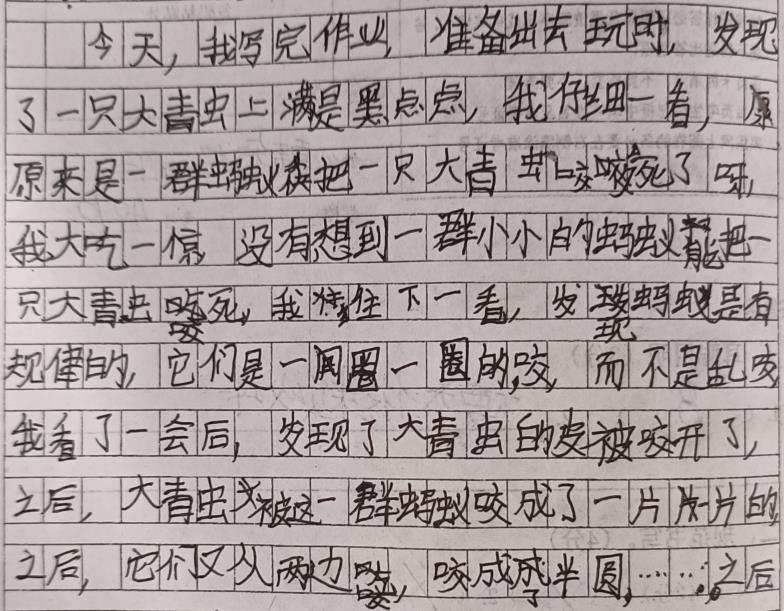 今天，我写完作业，准备出去玩时，发现
了一只大青虫上满是黑点点，我仔细一看，原
原来是一群蚂蚁把一只大青虫咬死了呀，
我大吃一惊没有想到一群小小的蚂蚁能把一
只大青虫咬死，我往下一看，发现蚂蚁是有
规律的，它们是一圈一圈的，咬，而不是乱咬
我看了一会后，发现了大青虫的皮被咬开了，
之后，大青虫被这一群蚂蚁咬成了一片片的
之后，它们又从两边咬，咬成了半圆，……之后